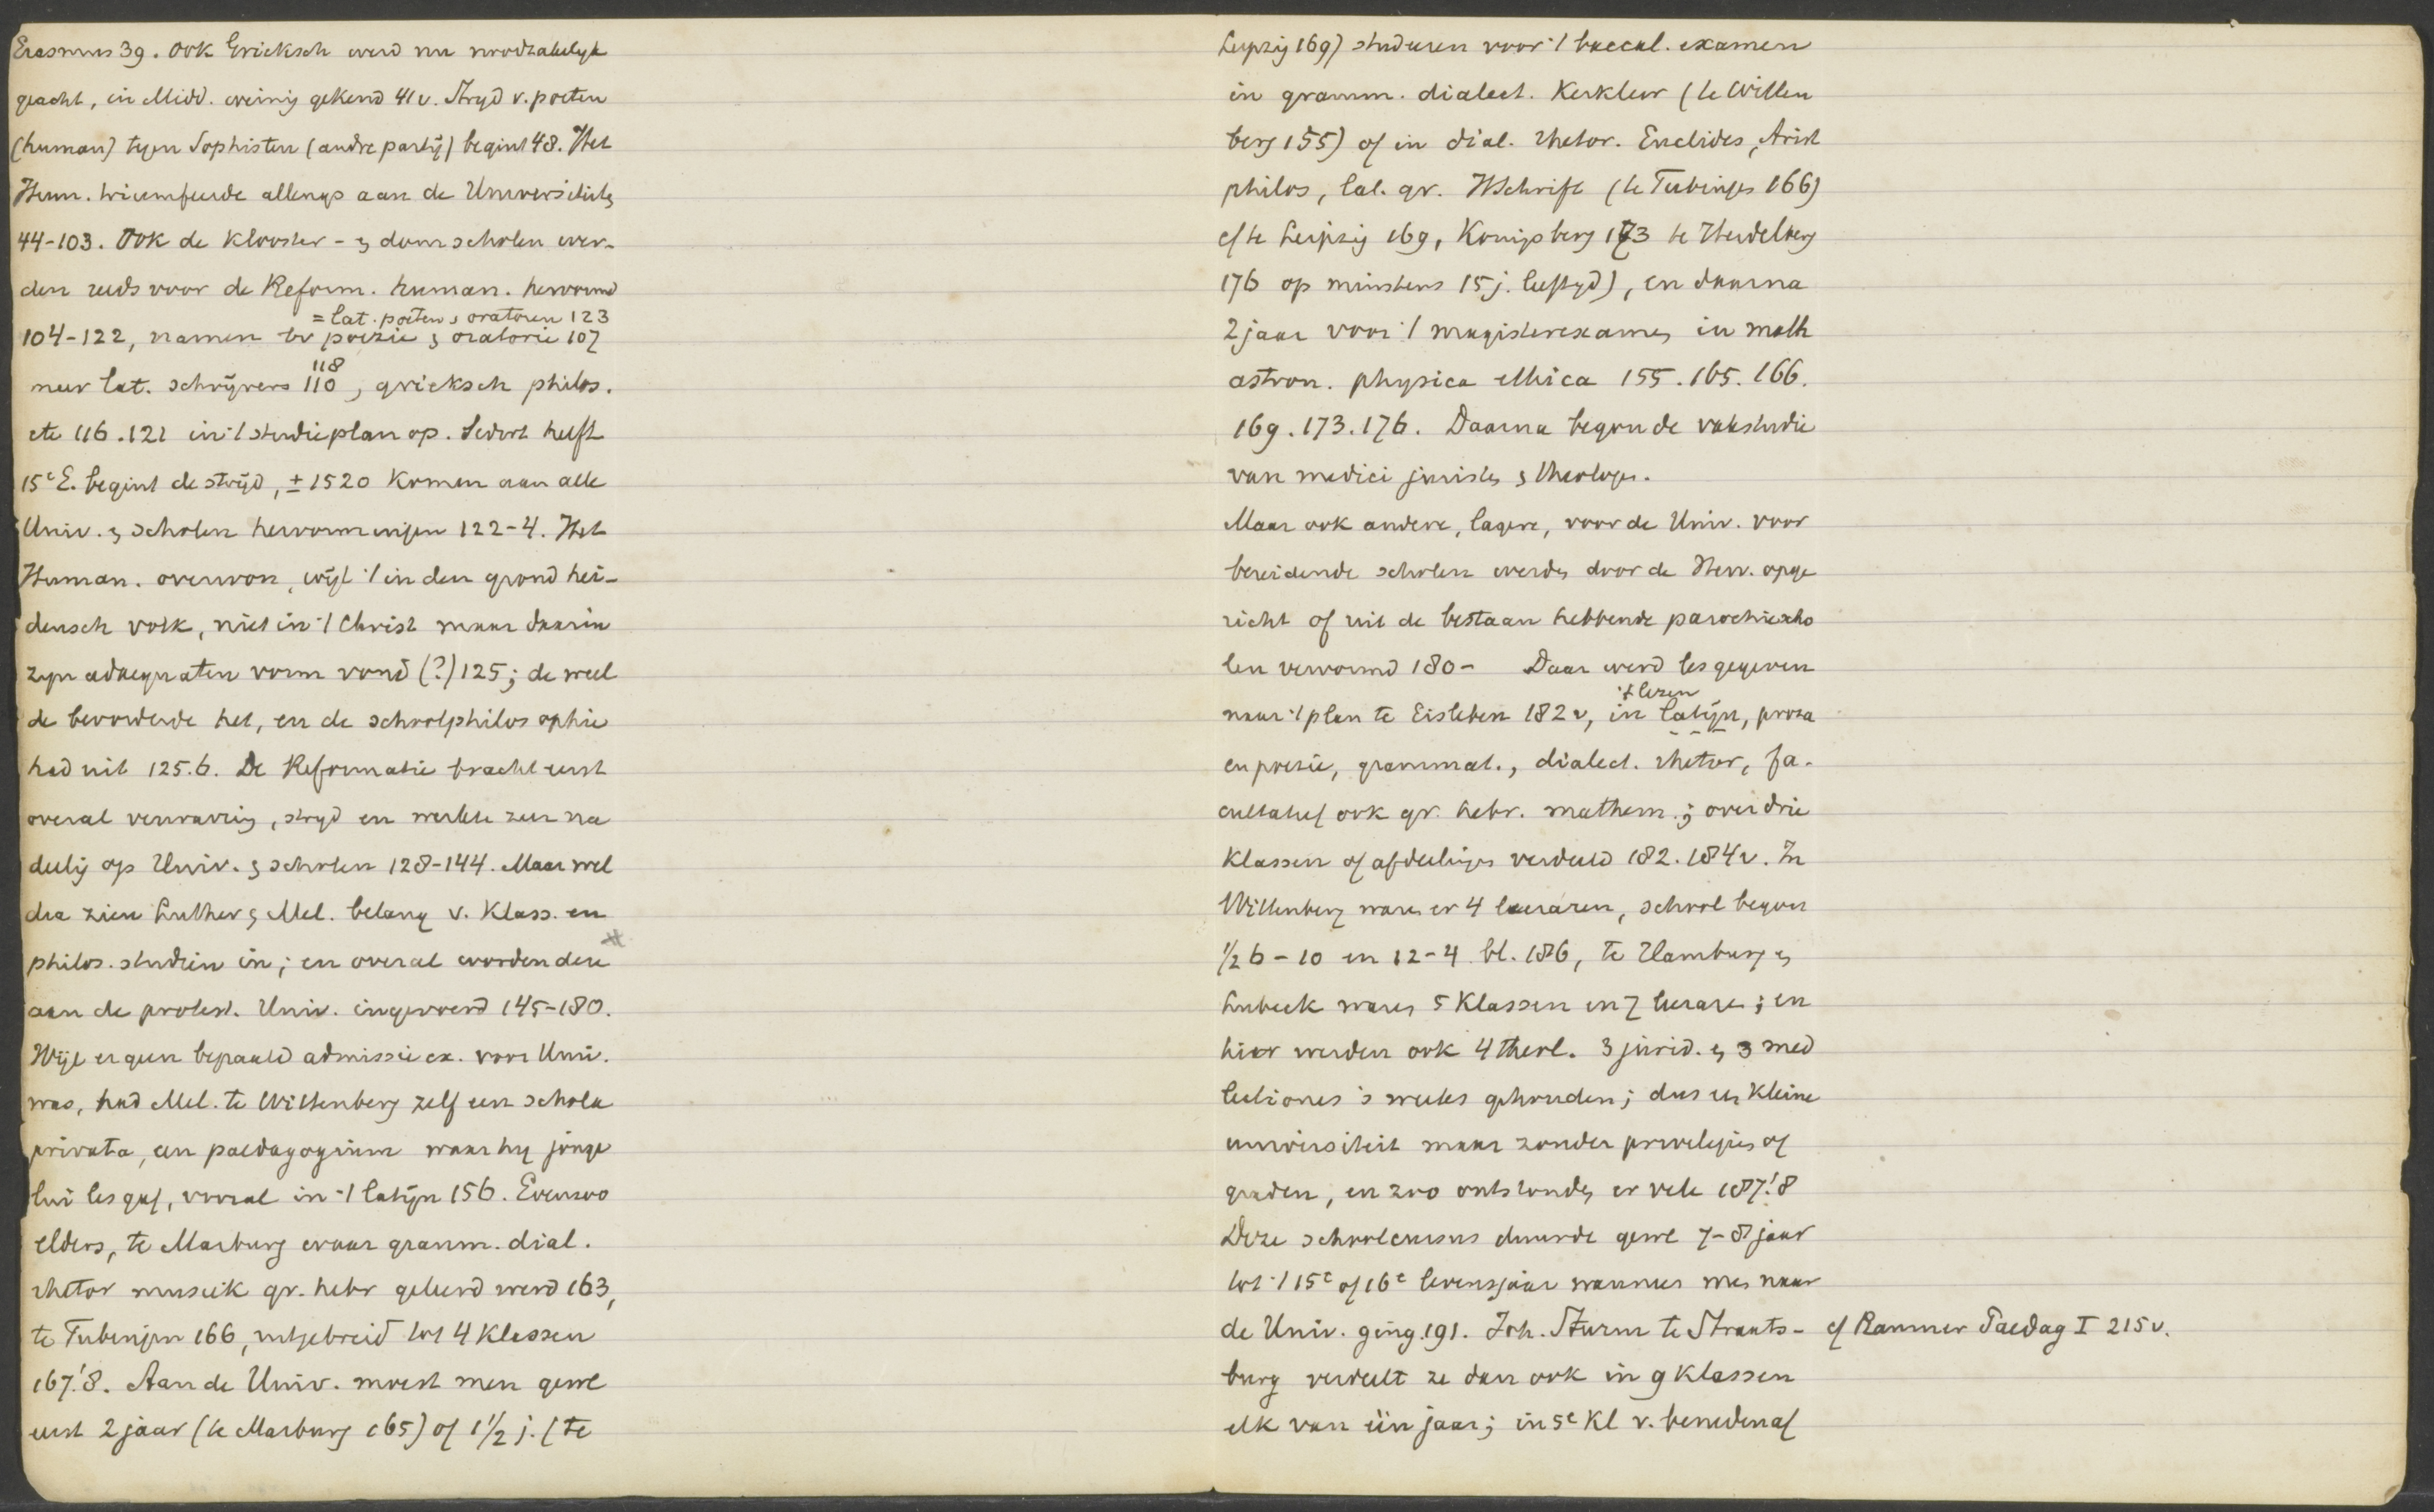 Erasmus 39. Ook Grieksch werd nu noodzakelyk
geacht, in Midd. weinig gekend 41v. Stryd v. poeten
(human) tegen Sophisten (andre partij) begint 48. Het
Hum. triumfeerde allengs aan de Universiteiten
44-103. Ook de klooster- en domscholen wer-
den reeds voor de Reform. human. hervormd
= lat. poeten en oratoren 123
104-122, namen bv poezie en oratorie 107
118
meer lat. schrijvers 110, grieksch philos.
etc 116.121 in 't studieplan op. Sedert helft
15e E. begint de strijd, ± 1520 komen aan alle
Univ. en scholen hervormingen 122-4. Het
Human. overwon, wijl 't in den grond hei-
densch volk, niet in 't Christ maar daarin
zyn adaequaten vorm vond (?) 125; de weel
de bevorderde het, en de schoolphilosophie
had uit 125.6. De Reformatie bracht eerst
overal verwarring, stryd en werkte zeer na
deelig op Univ. en scholen 128-144. Maar wel
dra zien Luther en Mel. belang v. Klass. en
philos. studien in; en overal worden deze
aan de protest. Univ. ingevoerd 145-180.
Wijl er geen bepaald admissie ex. voor Univ.
was, had Mel. te Wittenberg zelf een schola
privata, een paedagogium waar hy jonge
lui les gaf, vooral in 't latijn 156. Evenzoo
elders, te Marburg waar gramm. dial.
rhetor muziek gr. hebr geleerd werd 163,
te Tubingen 166, uitgebreid tot 4 klassen
167.'8. Aan de Univ. moest men gewl
eerst 2 jaar (te Marburg 165) of 1 1/2 j. (te
Leipzig 169) studeren voor 't baccal. examen
in gramm. dialect. Kerkleer (te Witten
berg 155) of in dial. rhetor. Euclides, Arist
philos, lat. gr. HSchrift (te Tubingen 166)
cf te Leipzig 169, Konigsberg 173 te Heidelberg
176 op minstens 15 j. leeftyd), en daarna
2 jaar voor 't magisterexamen in math
astron. physica ethica 155. 165. 166.
169. 173. 176. Daarna begon de vakstudie
van medici juristen en theologen.
Maar ook andere, lagere, voor de Univ. voor
bereidende scholen werden door de Herv. opge
richt of uit de bestaan hebbende parochiescho
len vervormd 180- Daar werd les gegeven
't lezen
naar 't plan te Eisleben 182v, in latijn, proza
en poezie, grammat., dialect. rhetor, fa-
cultatief ook gr. hebr. mathem.; over drie
klassen of afdeelingen verdeeld 182. 184v. In
Wittenberg waren er 4 leeraren, school begon
1/2 6 - 10 en 12-4 bl. 186, te Hamburg en
Lubeck waren 5 Klassen en 7 leeraren; en
hier werden ook 4 theol. 3 jurid. en 3 med
lectiones 's weeks gehouden; dus een kleine
universiteit maar zonder privelegies of
graden, en zoo ontstonden er vele 187.'8
Deze schoolcursus duurde gewl 7-8 jaar
tot 't 15e of 16e levensjaar wanneer men naar
de Univ. ging. 191. Joh. Sturm te Straats-
cf Raumer Paedag I 215v.
burg verdeelt ze dan ook in 9 klassen
elk van één jaar; in 5e Kl v. benedenaf